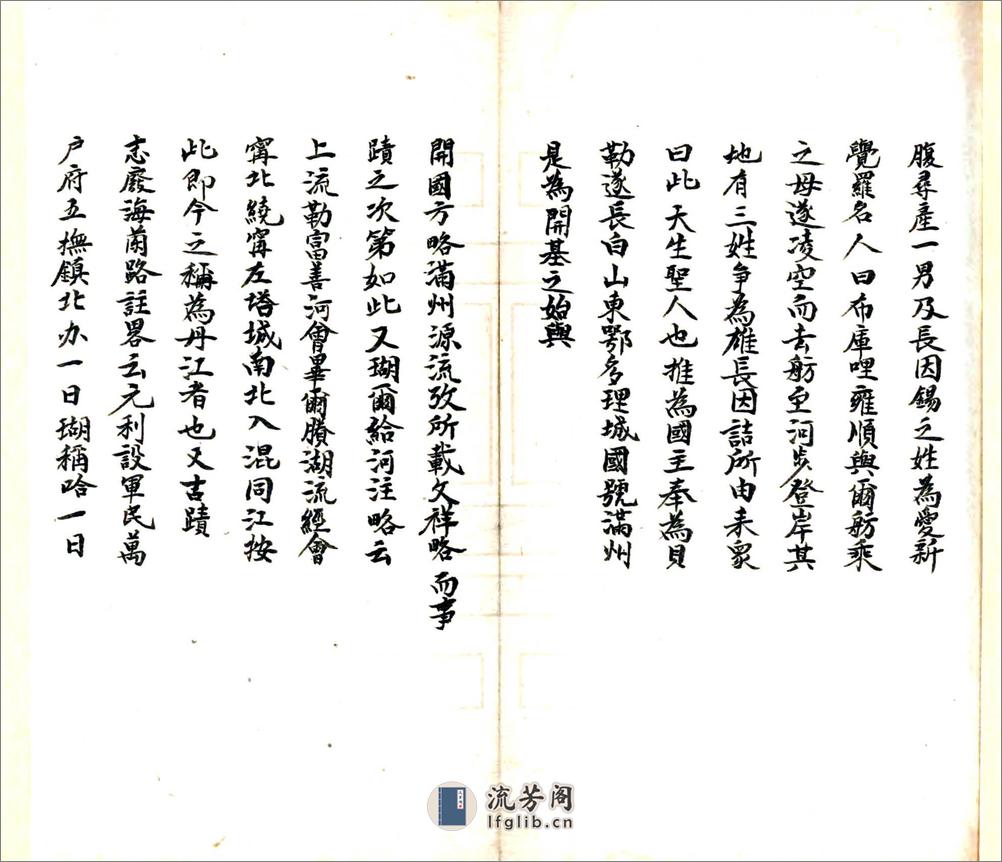 腹尋產一男及長因錫之姓為愛新
覺羅名人曰布庫哩雍順與爾舫乘
之母遂凌空而去舫至河步登岸其
地有三姓爭為雄長因詰所由来衆
曰此天生聖人也推為國主奉為貝
勒遂長白山東鄂多理城國號滿州
是為開基之始與
開國方略滿州源流攷所載文祥略而事
蹟之次第如此又瑚爾給河注略云
上流勒富善河會畢爾賸湖流經會
甯北繞甯左塔城南北入混同江按
此即今之稱為丹江者也又古蹟
志廢海蘭路註畧云元利設軍民萬
户府五撫鎮北办一日瑚稱哈一日
流芳阁
lfglib.cn